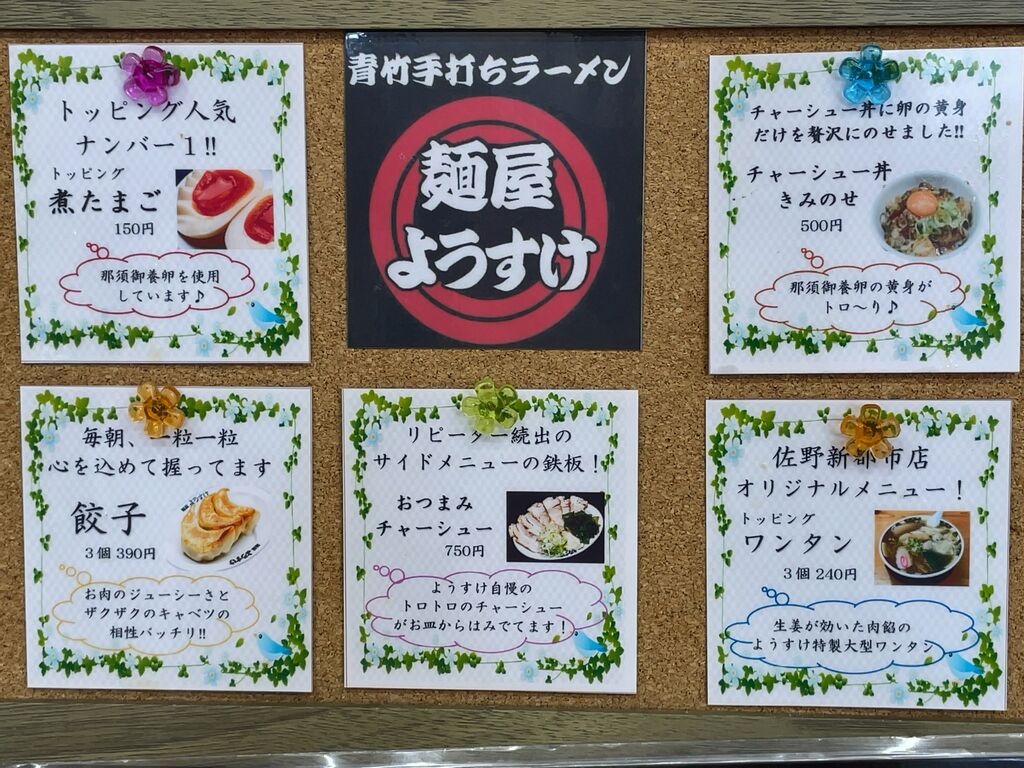 トッピング人気
ナンバー1!!
トッピング
煮たまご
150円
那須御養卵を使用
しています♪
青竹手打ちラーメン
麺屋
ようすけ
チャーシュー丼に卵の黄身
だけを贅沢にのせました!!
チャーシュー丼
きみのせ
500円
那須御養卵の黄身が
トロ〜り♪
毎朝、一粒一粒
心を込めて握ってます
餃子
3個 390円
お肉のジューシーさと
ザクザクのキャベツの
相性バッチリ!!
リピーター続出の
サイドメニューの鉄板!
おつまみ
チャーシュー
750円
ようすけ自慢の
トロトロのチャーシュー
がお皿からはみでてます!
佐野新都市店
オリジナルメニュー!
トッピング
ワンタン
3個 240円
生姜が効いた肉餡の
ようすけ特製大型ワンタン